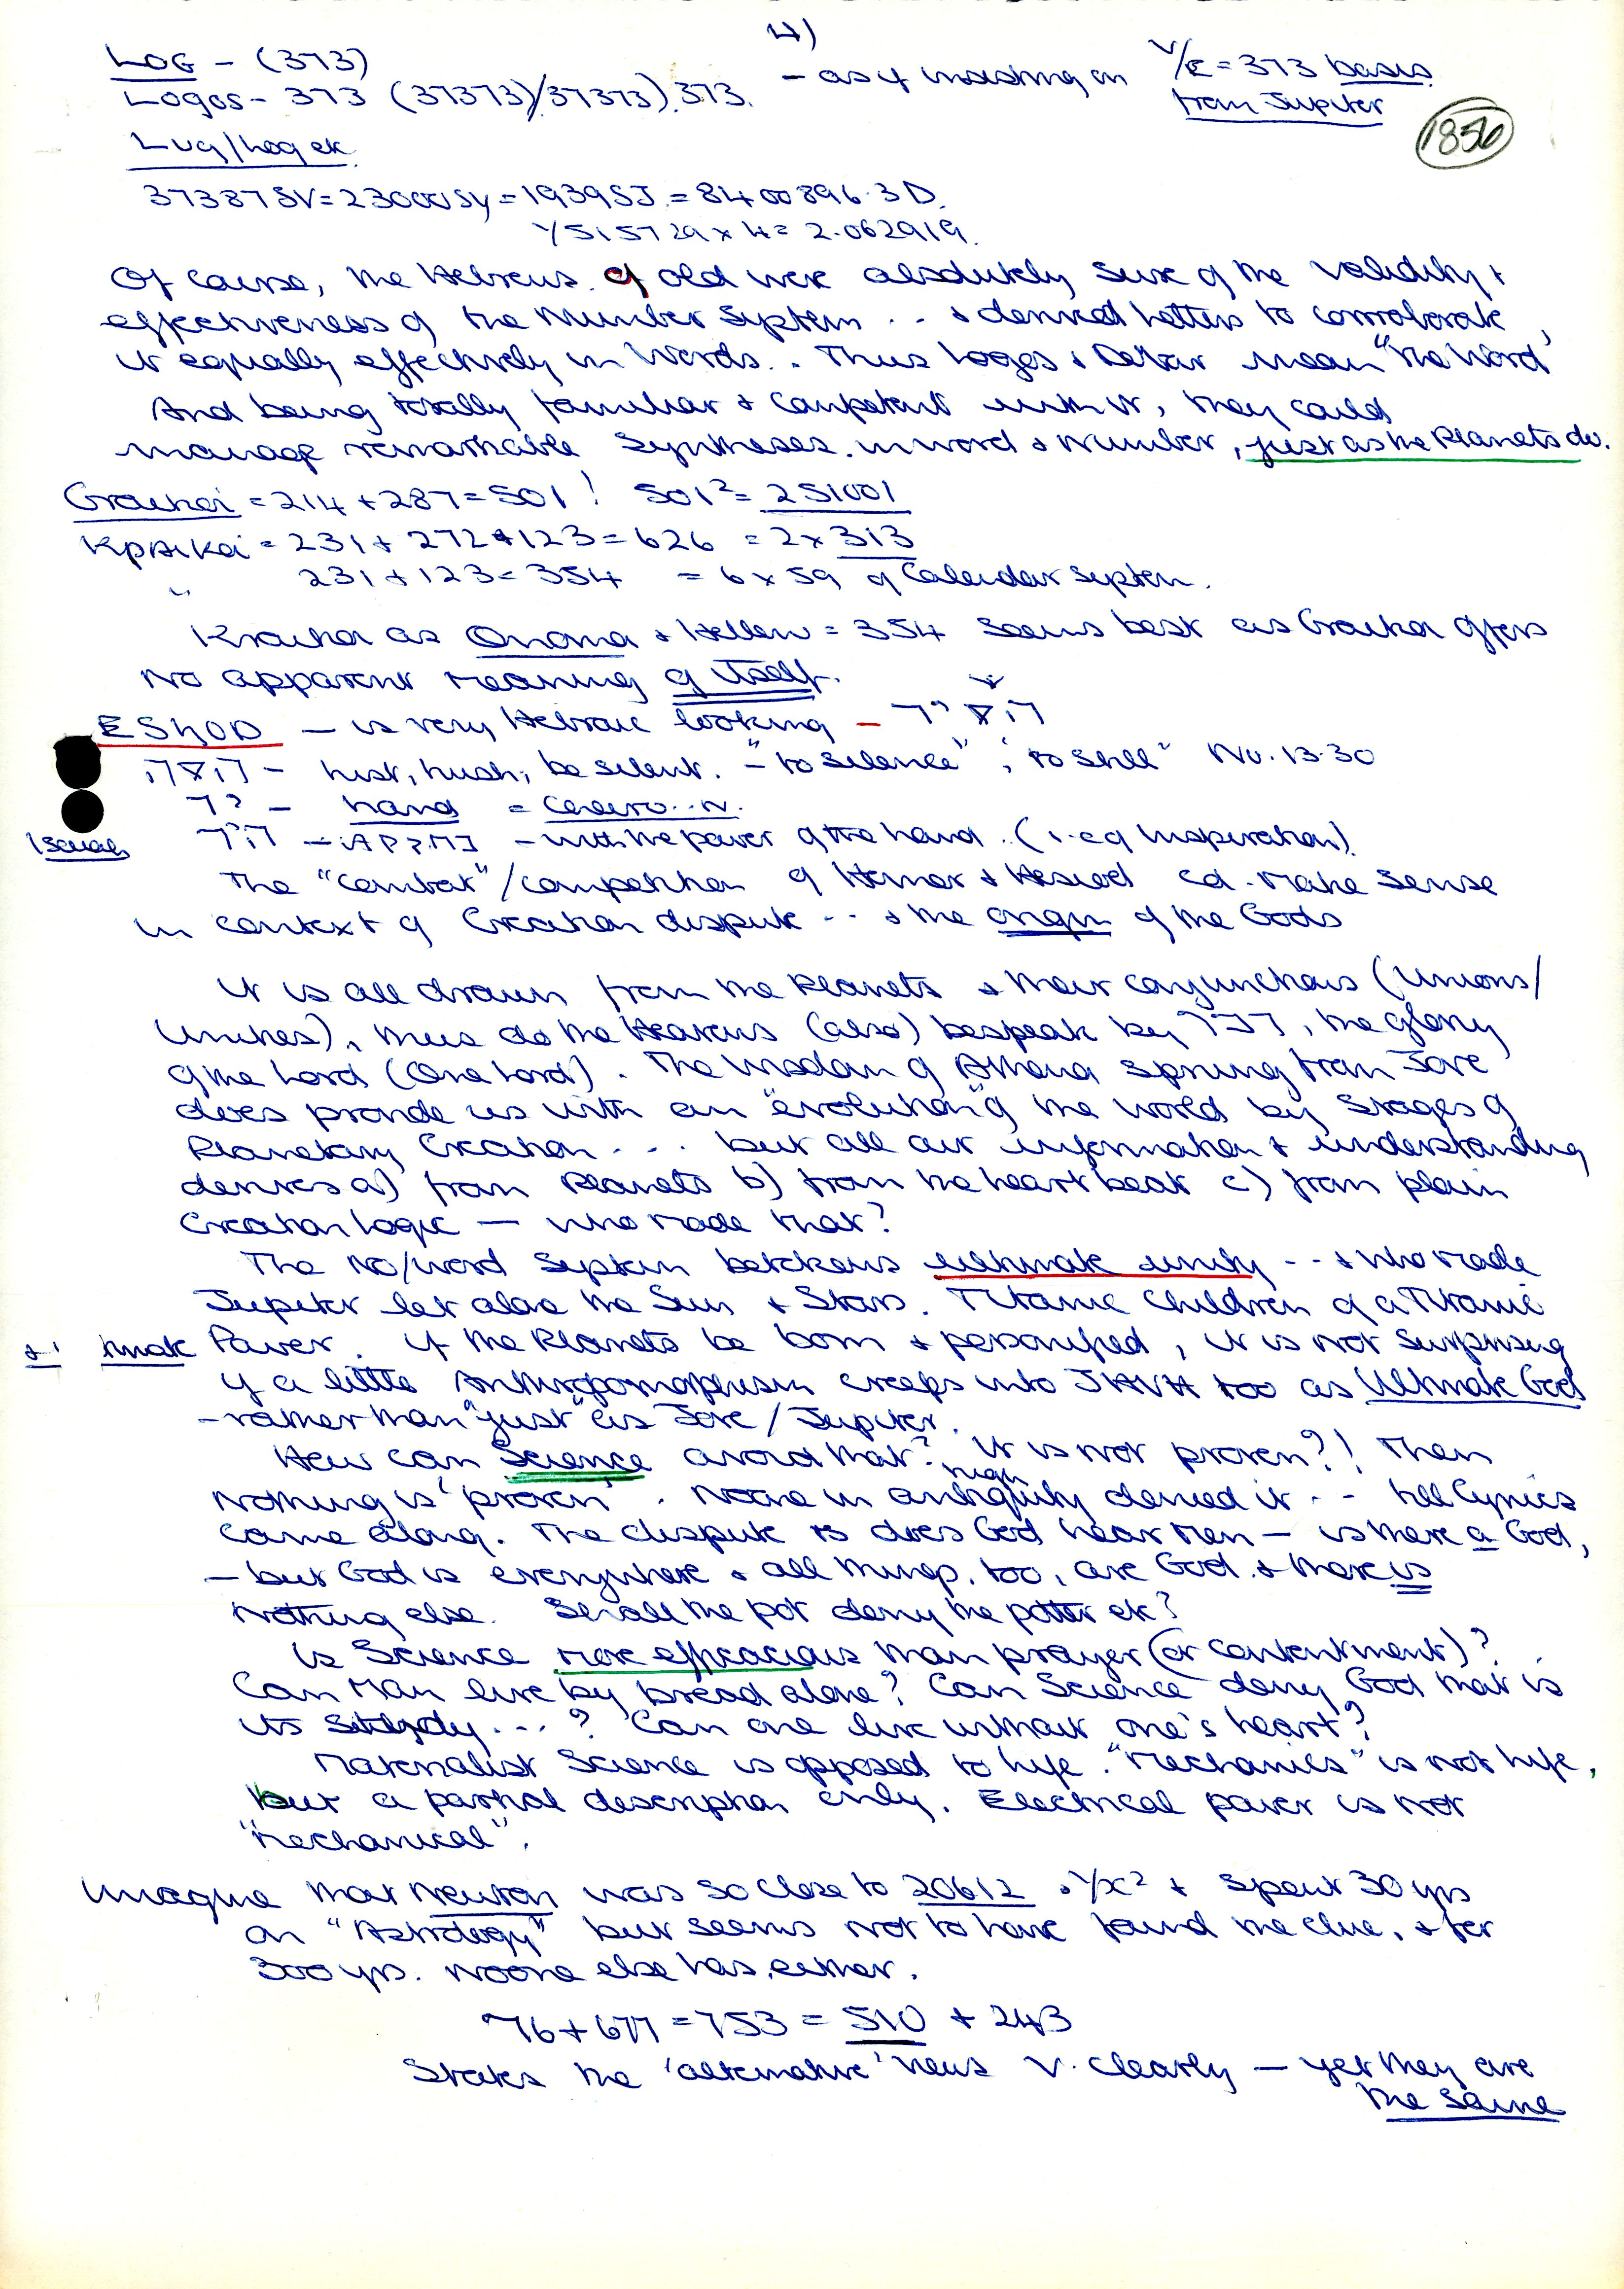 4)
LOG - (373)
Logos - 373 (37373)/37373).373. - as if insisting on V/E = 373 basis
from Jupiter
1856
Lug/Log etc.
37387SV = 23000SY = 1939SJ = 8400896.3D.
Of course, the Hebrews of old were absolutely sure of the validity &
effectiveness of the Number System .. & derived letters to corroborate
it equally effectively in Words. . Thus Logos & Debar mean "the Word'
And being totally familiar & competent with it, they could
manage remarkable syntheses. in word & number, just as the Planets do.
Graikoi = 214 + 287 = 501 ! 501² = 251001
= 231 + 272 + 123 = 626 = 2 x 313
" 231 + 123 = 354 = 6 x 59 of Calendar System.
as Onoma & Hellen = 354 seems best as offers
No apparent meaning of itself.
- is very Hebraic looking -
הסה - hist, hush, be silent. - "to silence", "to still" Nu. 13.30
יד - hand =
- with the power of the hand. (i.e of Inspiration).
The "Combat"/competition of Homer & Hesiod cd. make sense
in context of Creation dispute .. & the origin of the Gods
It is all drawn from the Planets & their conjunctions (Unions/
Unities), thus do the Heavens (also) bespeak by דבר, the glory
of the Lord (One Lord). The Wisdom of Athena springing from Jove
does provide us with an "evolution" of the world by stages of
Planetary Creation ... but all our information & understanding
derives a) from Planets b) from the heart beat c) from plain
Creation logic — who made that?
The No/word System betokens ultimate unity ... & who made
Jupiter let alone the Sun & Stars. Titanic Children of a Titanic
Power. If the Planets be born & personified, it is not surprising
if a little Anthropomorphism creeps into JHVH too as Ultimate God
- rather than "just" as Jove / Jupiter.
How can Science avoid that? It is not proven?! Then
Nothing is 'proven'. Noone in high antiquity denied it .. till Cynics
came along. The dispute is does God hear Men — is there a God,
- but God is everywhere & all things, too, are God. & there is
Nothing else. Shall the pot deny the potter etc?
Is Science more efficacious than prayer (or contentment)?
Can Man live by bread alone? Can Science deny God that is
its study ...? Can one live without one's heart?
Materialist Science is opposed to life. "Mechanics" is not life,
but a partial description only. Electrical power is not
"Mechanical".
Imagine that Newton was so close to 20612 & 1/x² & spent 30 yrs
on "Astrology" but seems not to have found the clue, & for
300 yrs. Noone else has, either.
76 + 677 = 753 = 510 + 243
States the 'alternative' views v. clearly — yet they are
the same